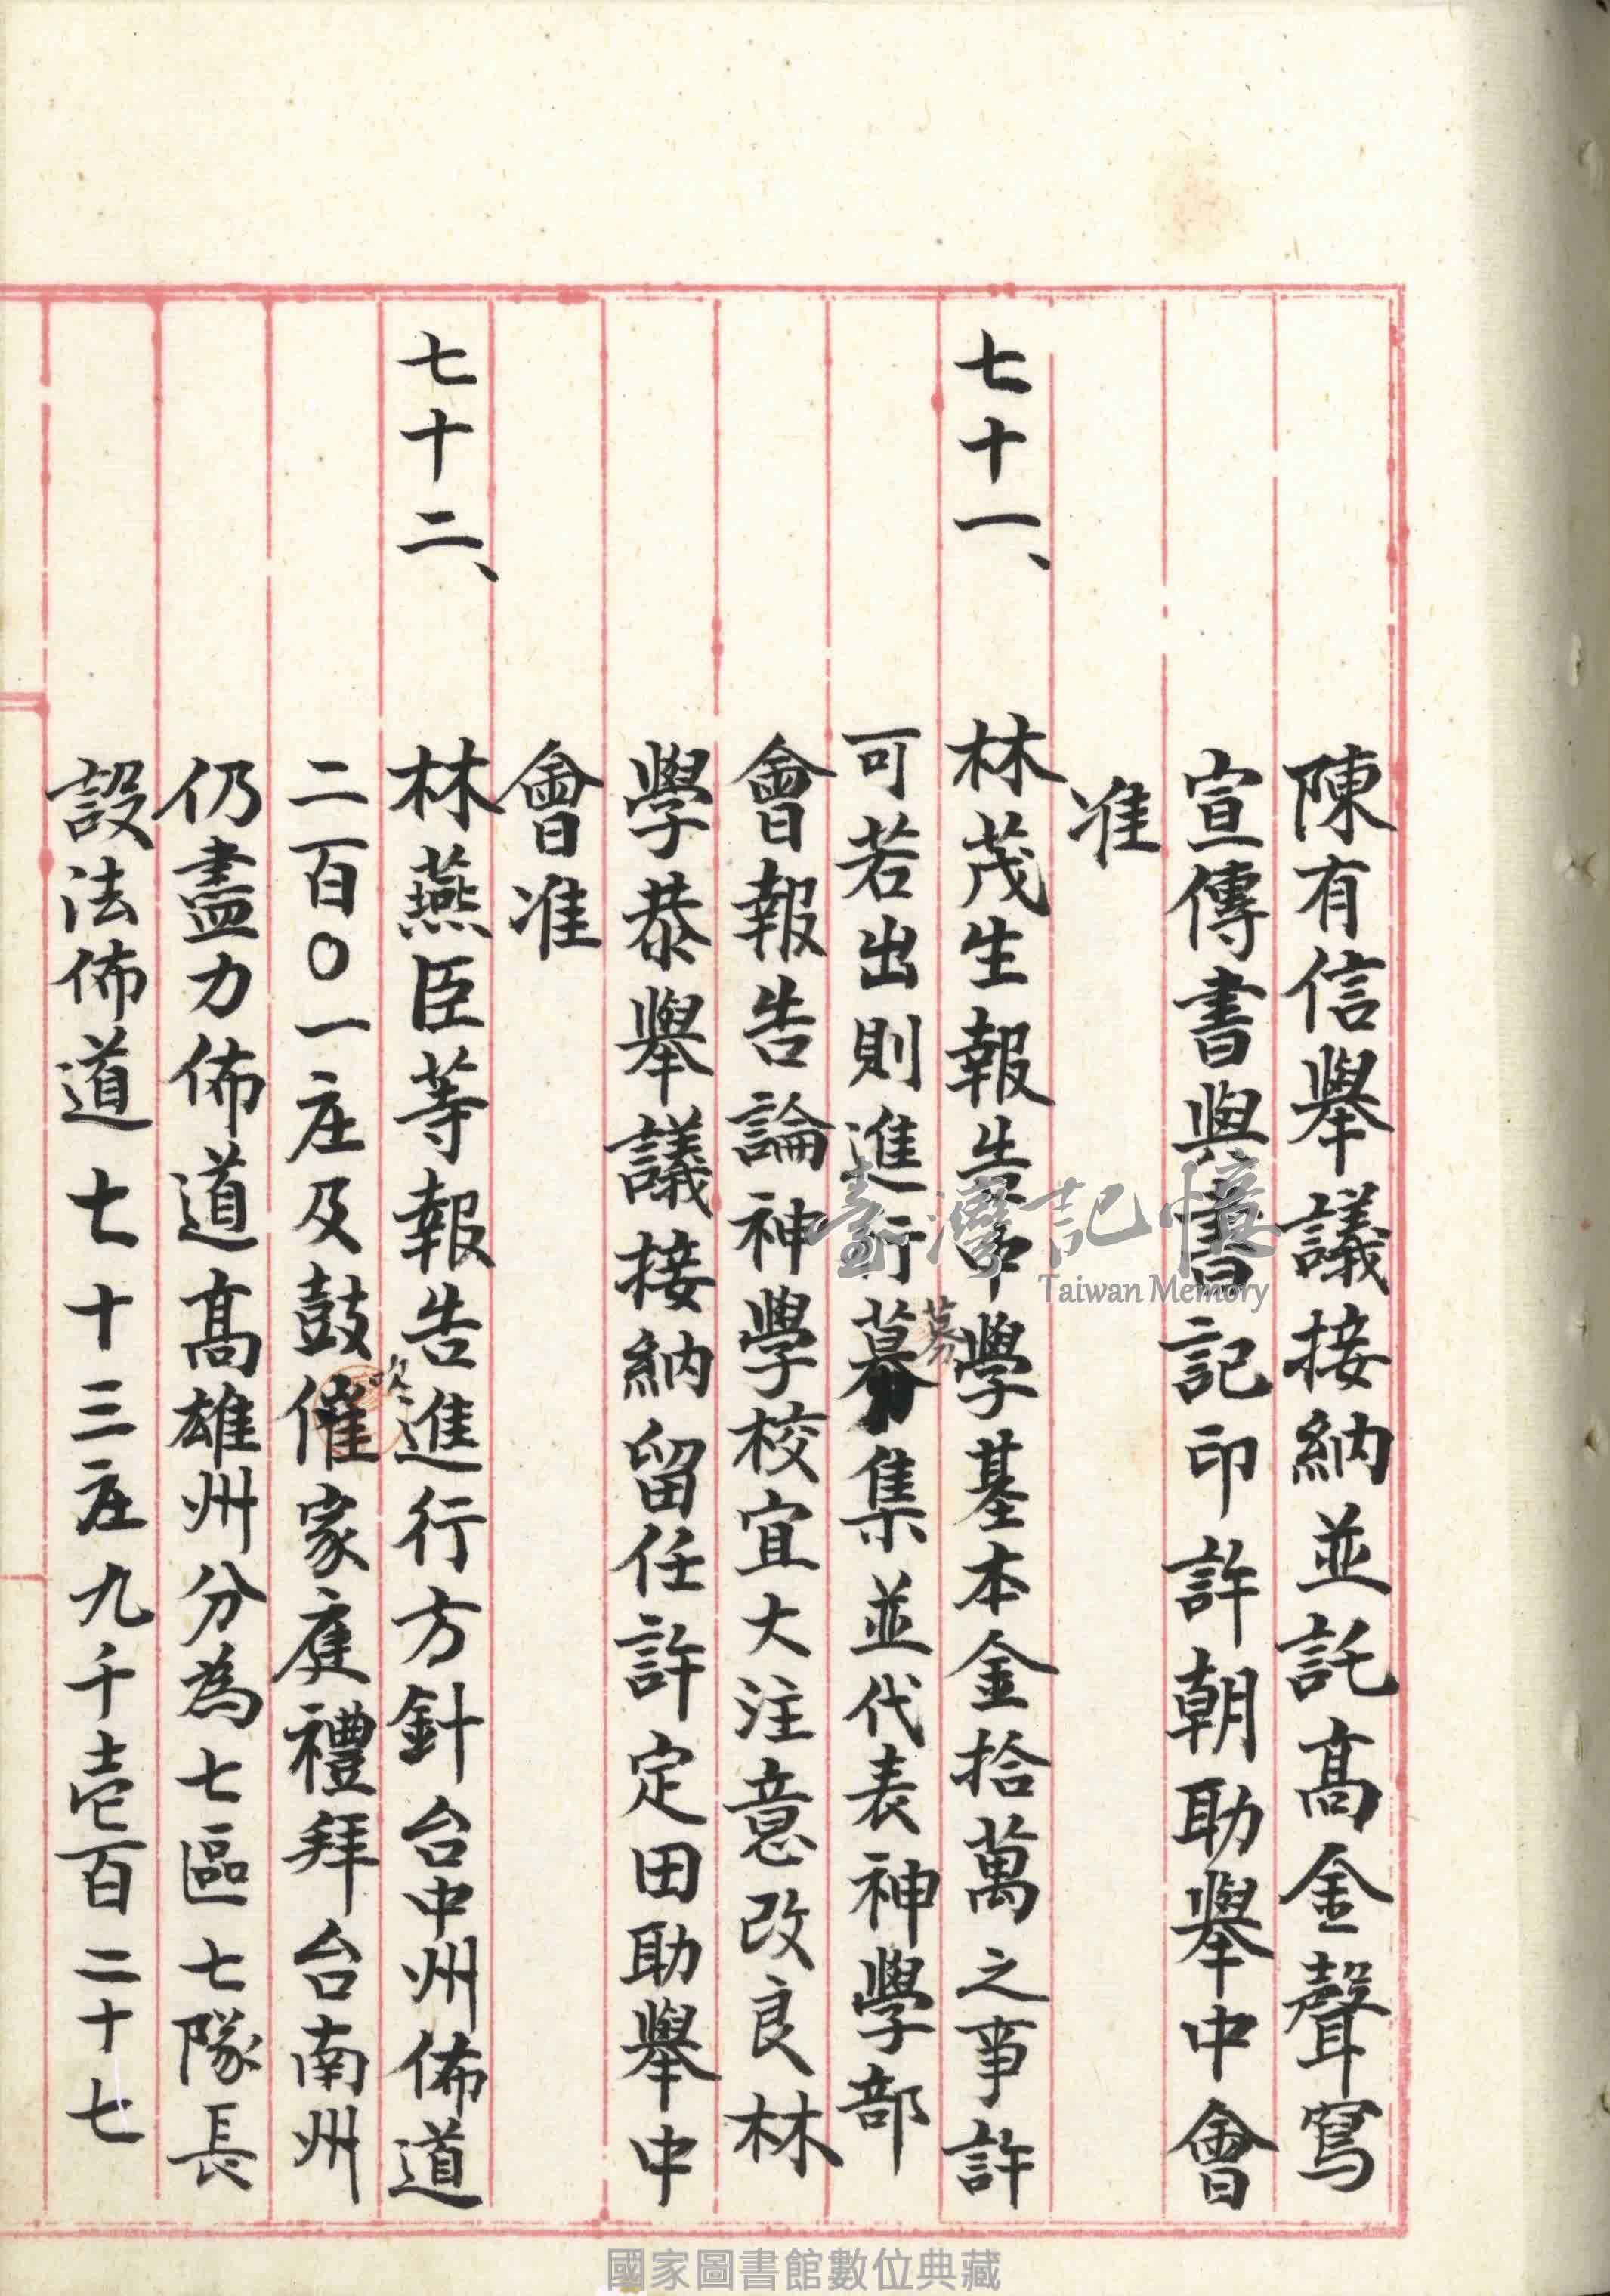 陳有信舉議接納並託高金聲寫
宣傳書與書記印許朝助舉中會
准
七十一、林茂生報告中學基本金拾萬之事許
可若出則進行募集並代表神學部
募
會報告論神學校宜大注意改良林
學恭舉議接納留任許定田助舉中
會准
七十二、林燕臣等報告進行方針台中州佈道
吹
二百〇一庄及鼓催家庭禮拜台南州
仍盡力佈道高雄州分為七區七隊長
設法佈道七十三庄九千壱百二十七
臺灣記憶
Taiwan Memory
國家圖書館數位典藏